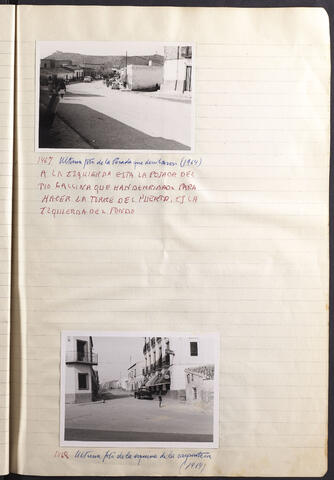 1467 Ultima foto de la Posada que derribaron (1964)
A LA IZQUIERDA ESTA LA POSADA DEL
TIO GALLINA QUE HAN DERRIBADO PARA
HACER LA TORRE DEL PUERTO, ES LA
IZQUIERDA DEL FONDO
1468 Ultima foto de la esquina de la carpinteria
(1964)